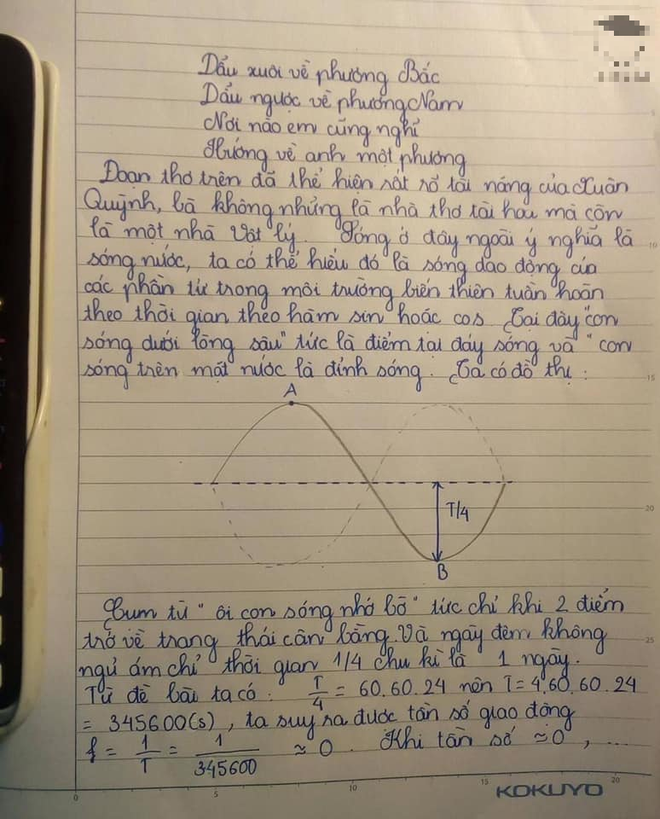 Dẫu xuôi về phương Bắc
Dẫu ngược về phương Nam
Nơi nào em cũng nghĩ
Hướng về anh một phương
Đoạn thơ trên đã thể hiện rất rõ tài năng của Xuân
Quỳnh, bà không những là nhà thơ tài hoa mà còn
là một nhà Vật lý. Sóng ở đây ngoài ý nghĩa là
sóng nước, ta có thể hiểu đó là sóng dao động của
các phần tử trong môi trường biến thiên tuần hoàn
theo thời gian theo hàm sin hoặc cos. Tại đây "con
sóng dưới lòng sâu" tức là điểm tại đáy sóng và "con
sóng trên mặt nước là đỉnh sóng. Ta có đồ thị:
A
T/4
B
Cụm từ "ôi con sóng nhớ bờ" tức chỉ khi 2 điểm
trở về trạng thái cân bằng. Và ngày đêm không
ngủ ám chỉ thời gian 1/4 chu kì là 1 ngày.
Từ đề bài ta có: T/4 = 60.60.24 nên T = 4.60.60.24
= 345600(s), ta suy ra được tần số giao động
f = 1/T = 1/345600 ≈ 0. Khi tần số ≈ 0, ...
10
15
20
25
0 5 10 15 20
KOKUYO